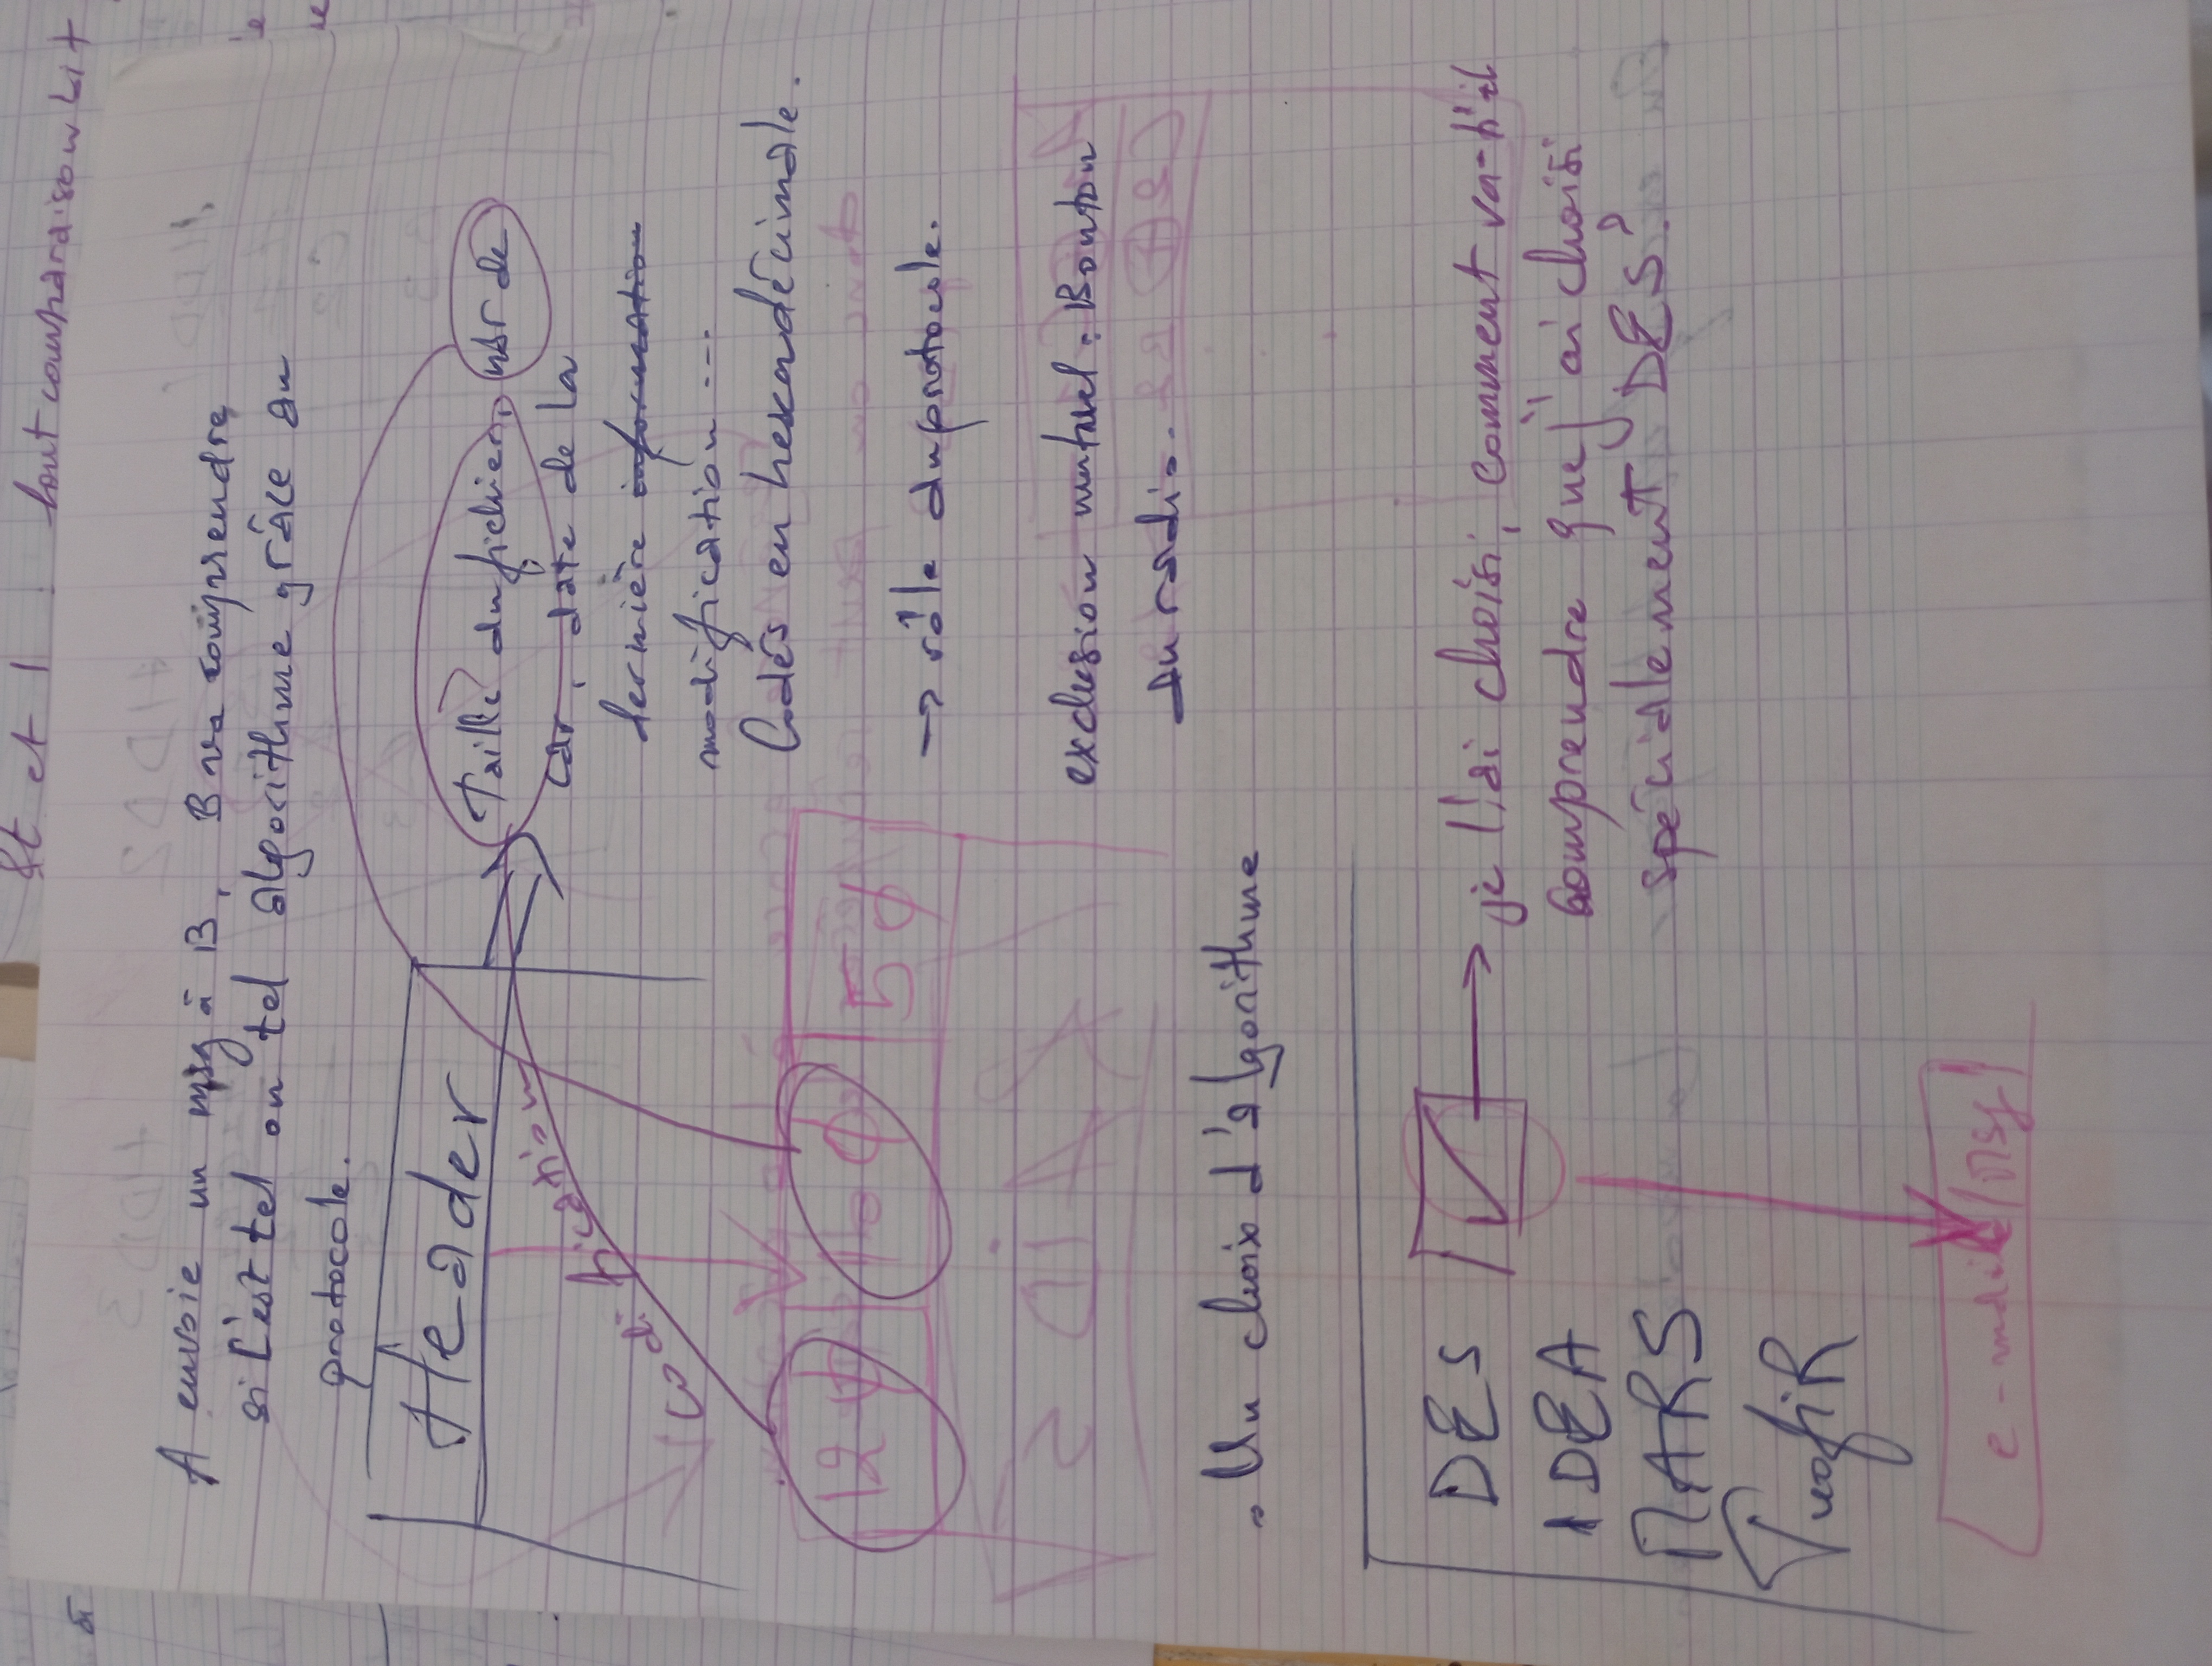 et 1 : tout comparaison bit
A envoie un msg à B, B va comprendre
si c'est tel ou tel algorithme grâce au
protocole.
Header
Taille du fichier, nbr de
car, date de la
codification
dernière information
modification ---
Codés en hexadécimale.
120 100 50
→ rôle du protocole.
exclusion mutuel : Bouton
au radio.
. Un choix d'algorithme
DES ✓ → je l'ai choisi, comment va-t'il
IDEA
comprendre que j'ai choisi
MARS
spécialement DES?
e-maile/Msg